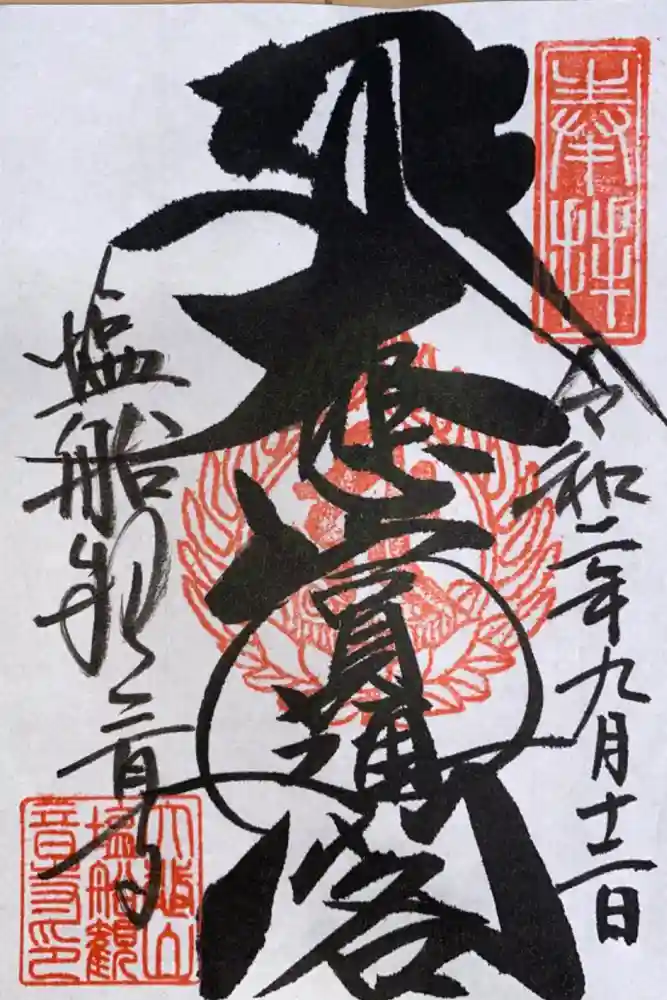 奉拝
令和二年九月
大悲圓通閣
塩船観音寺
大悲山
塩船観
音寺印